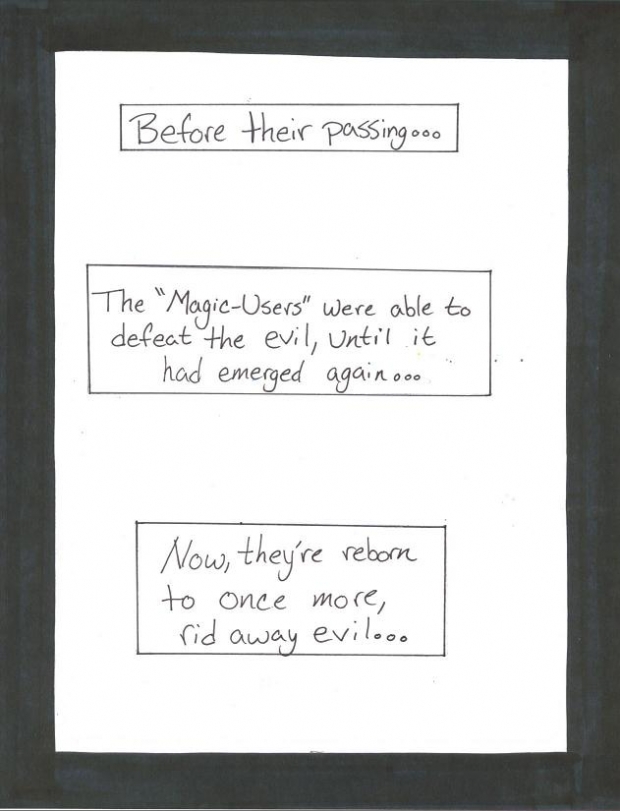 Before their passing...
The "Magic-Users" were able to
defeat the evil, until it
had emerged again...
Now, they're reborn
to once more,
rid away evil...